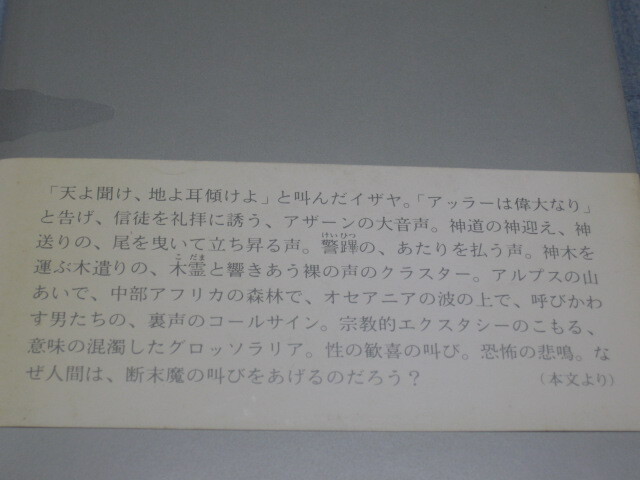 「天よ聞け、地よ耳傾けよ」と叫んだイザヤ。「アッラーは偉大なり」
と告げ、信徒を礼拝に誘う、アザーンの大音声。神道の神迎え、神
送りの、尾を曳いて立ち昇る声。警蹕の、あたりを払う声。神木を
運ぶ木遣りの、木霊と響きあう裸の声のクラスター。アルプスの山
あいで、中部アフリカの森林で、オセアニアの波の上で、呼びかわ
す男たちの、裏声のコールサイン。宗教的エクスタシーのこもる、
意味の混濁したグロッソラリア。性の歓喜の叫び。恐怖の悲鳴。な
ぜ人間は、断末魔の叫びをあげるのだろう？
（本文より）